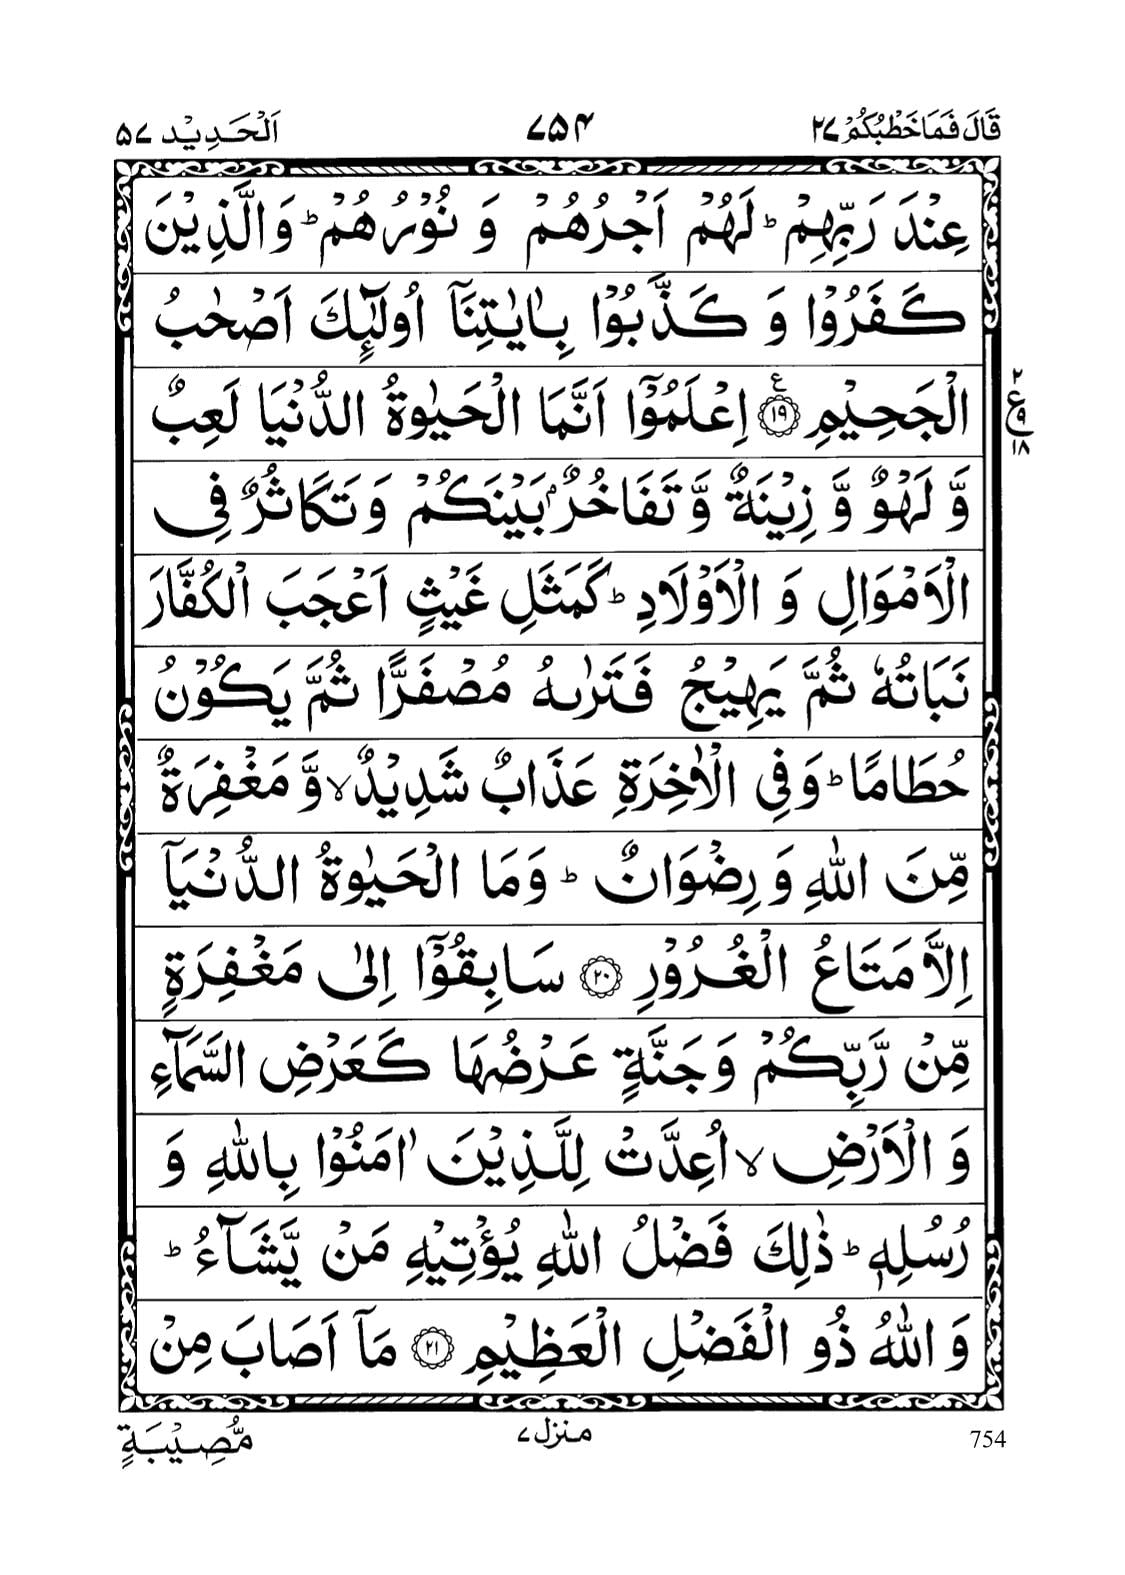 قَالَ فَمَا خَطْبُكُمْ ٢٧ ٧٥۴ اَلْحَدِيْد ۵٧
عِنْدَ رَبِّهِمْ ؕ لَهُمْ اَجْرُهُمْ وَ نُوْرُهُمْ ؕ وَالَّذِيْنَ
كَفَرُوْا وَ كَذَّبُوْا بِاٰيٰتِنَاۤ اُولٰٓئِكَ اَصْحٰبُ
الْجَحِيْمِ ﴿۱۹﴾ؑ اِعْلَمُوْۤا اَنَّمَا الْحَيٰوةُ الدُّنْيَا لَعِبٌ
٢ ع ٩ ١٨
وَّ لَهْوٌ وَّ زِيْنَةٌ وَّ تَفَاخُرٌۢ بَيْنَكُمْ وَ تَكَاثُرٌ فِى
الْاَمْوَالِ وَ الْاَوْلَادِ ؕ كَمَثَلِ غَيْثٍ اَعْجَبَ الْكُفَّارَ
نَبَاتُهٗ ثُمَّ يَهِيْجُ فَتَرٰىهُ مُصْفَرًّا ثُمَّ يَكُوْنُ
حُطَامًا ؕ وَفِي الْاٰخِرَةِ عَذَابٌ شَدِيْدٌ ۙ وَّ مَغْفِرَةٌ
مِّنَ اللّٰهِ وَ رِضْوَانٌ ؕ وَمَا الْحَيٰوةُ الدُّنْيَاۤ
اِلَّا مَتَاعُ الْغُرُوْرِ ﴿۲۰﴾ سَابِقُوْۤا اِلٰى مَغْفِرَةٍ
مِّنْ رَّبِّكُمْ وَ جَنَّةٍ عَرْضُهَا كَعَرْضِ السَّمَآءِ
وَ الْاَرْضِ ۙ اُعِدَّتْ لِلَّذِيْنَ اٰمَنُوْا بِاللّٰهِ وَ
رُسُلِهٖ ؕ ذٰلِكَ فَضْلُ اللّٰهِ يُؤْتِيْهِ مَنْ يَّشَآءُ ؕ
وَ اللّٰهُ ذُو الْفَضْلِ الْعَظِيْمِ ﴿۲۱﴾ مَاۤ اَصَابَ مِنْ
754 منزل ٧ مُّصِيْبَةٍ